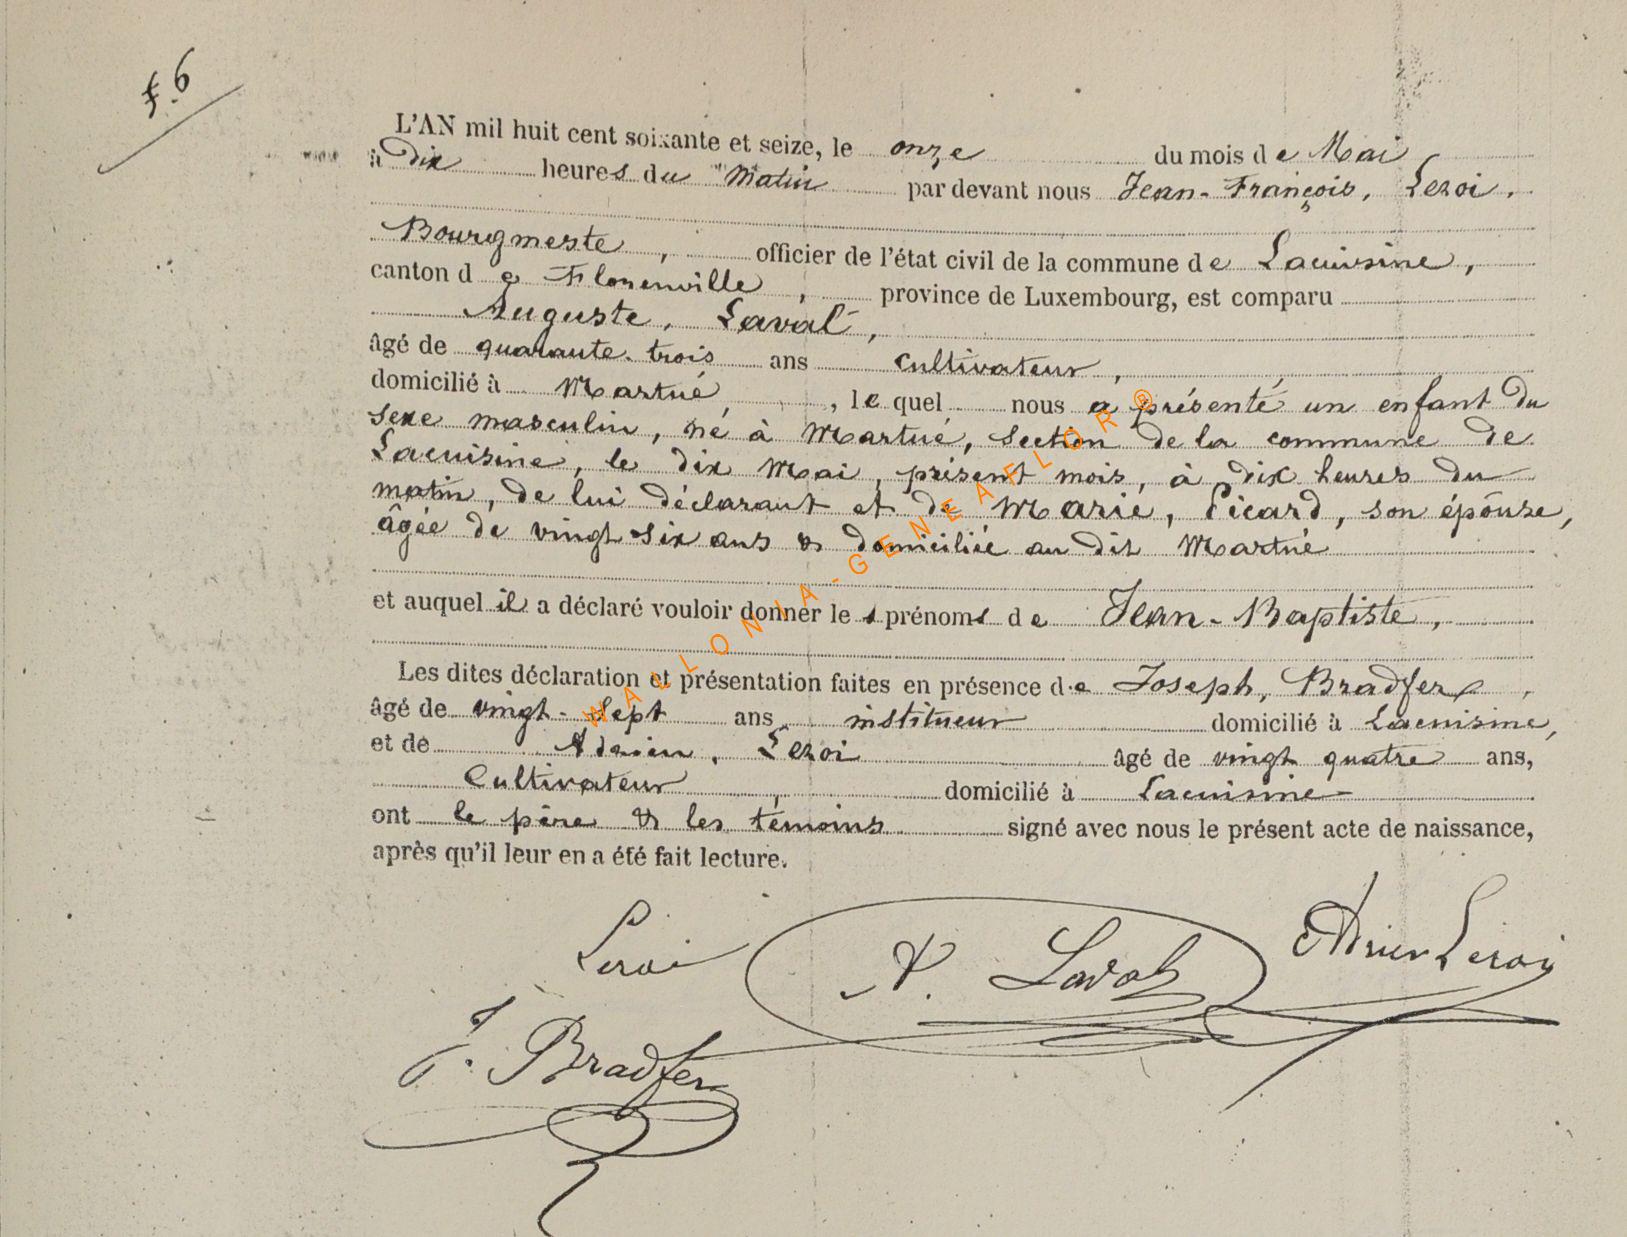 f. 6
L'AN mil huit cent soixante et seize, le onze du mois de Mai
à Dix heures du Matin par devant nous Jean-François, Leroi,
Bourgmestre, officier de l'état civil de la commune de Lacuisine,
canton de Florenville, province de Luxembourg, est comparu
Auguste, Laval,
âgé de quarante-trois ans cultivateur,
domicilié à Martué, lequel nous a présenté un enfant du
sexe masculin, né à Martué, section de la commune de
Lacuisine, le dix Mai, présent mois, à dix heures du
matin, de lui déclarant et de Marie, Picard, son épouse,
âgée de vingt-six ans & domiciliée au dit Martué
et auquel il a déclaré vouloir donner les prénoms de Jean-Baptiste,
Les dites déclaration et présentation faites en présence de Joseph, Bradfer,
âgé de vingt-sept ans institueur domicilié à Lacuisine,
et de Adrien, Leroi âgé de vingt quatre ans,
Cultivateur, domicilié à Lacuisine
ont le père & les témoins signé avec nous le présent acte de naissance,
après qu'il leur en a été fait lecture.
Leroi A. Laval Adrien Leroy
J. Bradfer
WALLONIA-GENEAFLOR®